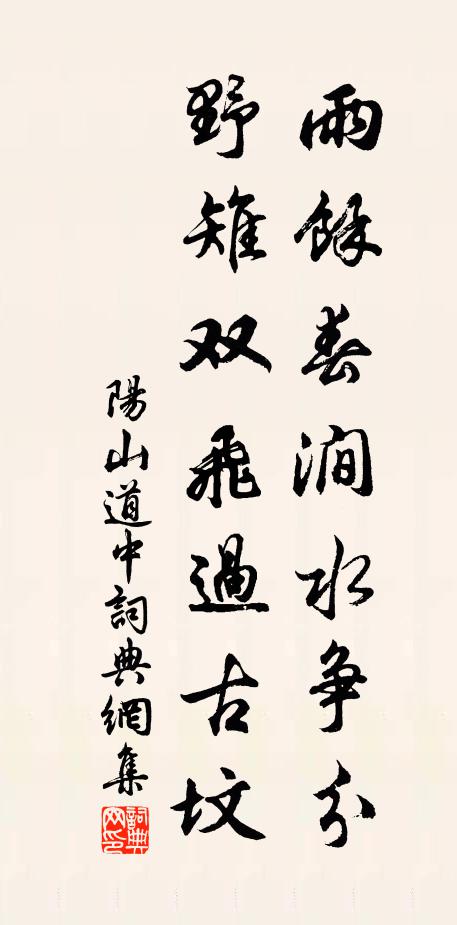 雨餘春澗水争分
野雉双飛過古坟
陽山道中詞典網集
詞典网印